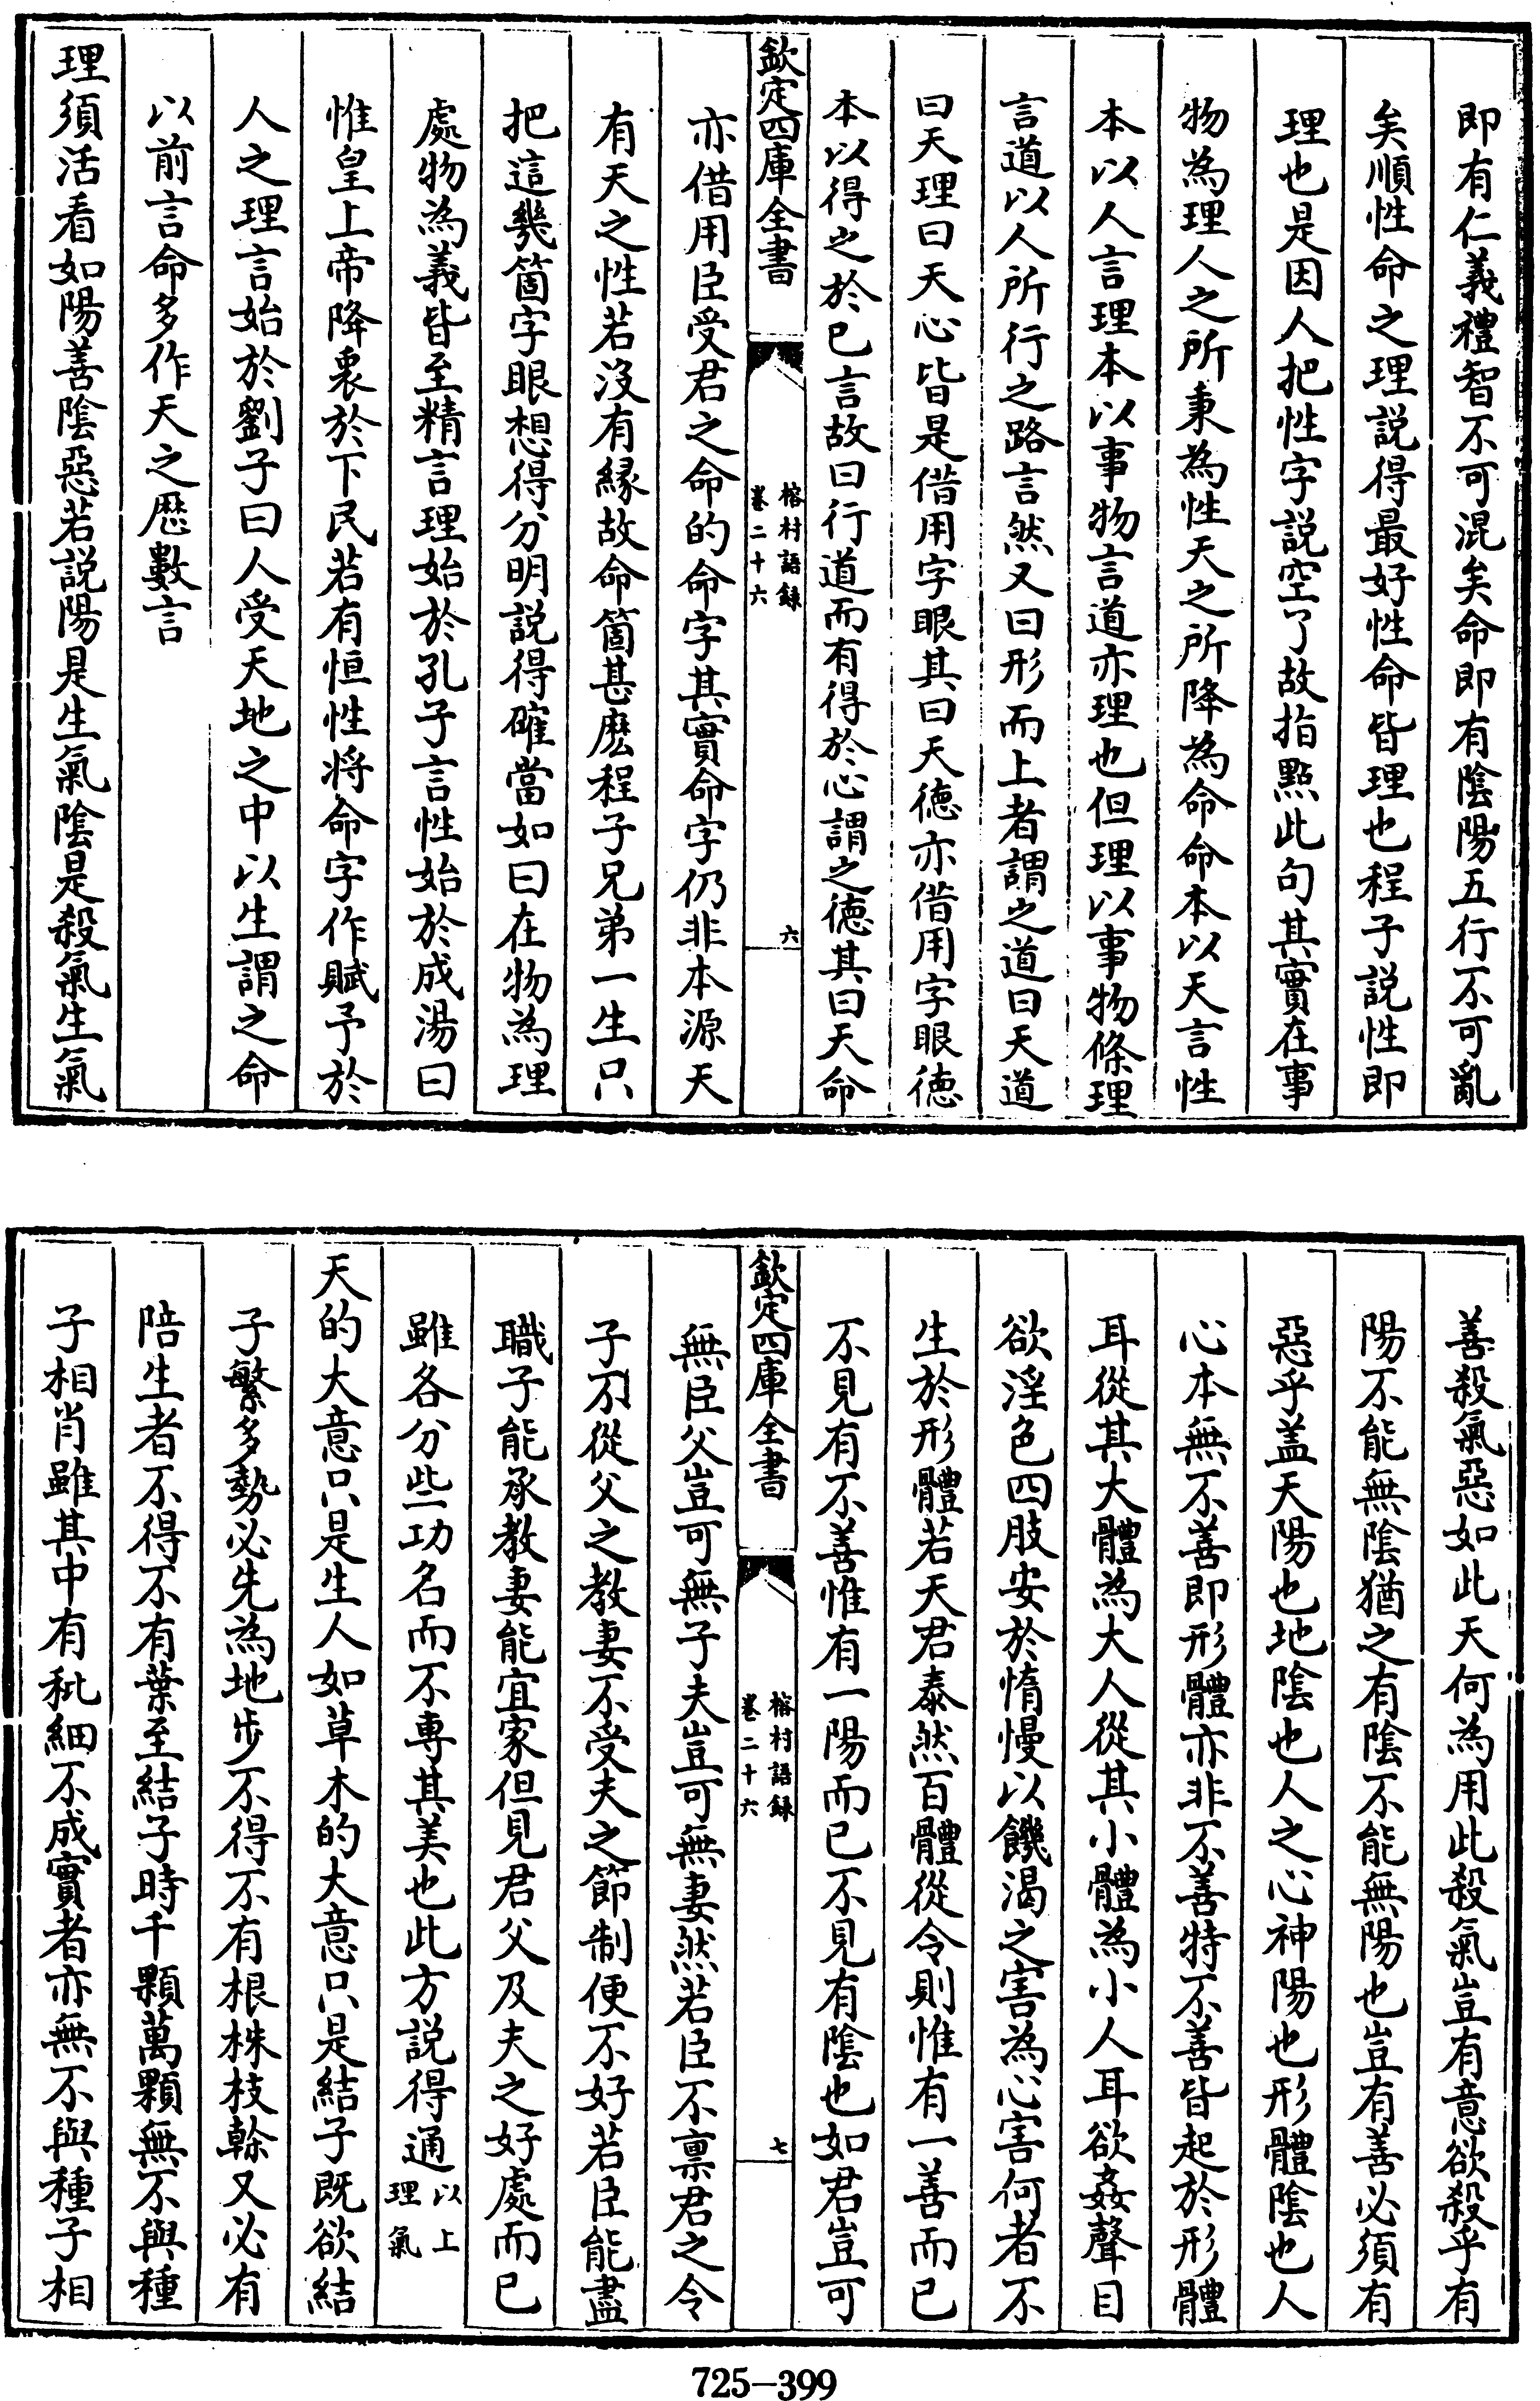 即有仁義禮智不可混矣命即有陰陽五行不可亂
矣順性命之理説得最好性命皆理也程子説性即
理也是因人把性字説空了故指點此句其實在事
物為理人之所秉為性天之所降為命命本以天言性
本以人言理本以事物言道亦理也但理以事物條理
言道以人所行之路言然又曰形而上者謂之道曰天道
曰天理曰天心皆是借用字眼其曰天徳亦借用字眼徳
本以得之於已言故曰行道而有得於心謂之徳其曰天命
欽定四庫全書
榕村語録
卷二十六
六
亦借用臣受君之命的命字其實命字仍非本源天
有天之性若沒有緣故命箇甚麽程子兄弟一生只
把這幾箇字眼想得分明説得確當如曰在物為理
處物為義皆至精言理始於孔子言性始於成湯曰
惟皇上帝降衷於下民若有恒性将命字作賦予於
人之理言始於劉子曰人受天地之中以生謂之命
以前言命多作天之厯數言
理須活看如陽善陰惡若説陽是生氣陰是殺氣生氣
善殺氣惡如此天何為用此殺氣豈有意欲殺乎有
陽不能無陰猶之有陰不能無陽也豈有善必須有
惡乎盖天陽也地陰也人之心神陽也形體陰也人
心本無不善即形體亦非不善特不善皆起於形體
耳從其大體為大人從其小體為小人耳欲姦聲目
欲淫色四肢安於惰慢以饑渴之害為心害何者不
生於形體若天君泰然百體從令則惟有一善而已
不見有不善惟有一陽而已不見有陰也如君豈可
欽定四庫全書
榕村語録
卷二十六
七
無臣父豈可無子夫豈可無妻然若臣不禀君之令
子不從父之教妻不受夫之節制便不好若臣能盡
職子能承教妻能宜家但見君父及夫之好處而已
雖各分些功名而不専其美也此方説得通以上理氣
天的大意只是生人如草木的大意只是結子既欲結
子繁多勢必先為地步不得不有根株枝榦又必有
陪生者不得不有葉至結子時千顆萬顆無不與種
子相肖雖其中有秕細不成實者亦無不與種子相
725-399